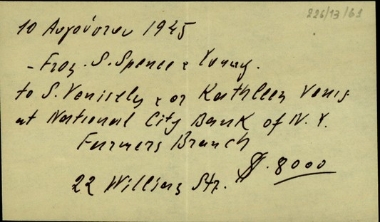 226/13/61
10 Αυγούστου 1945
- From S. Spence &
to S. Venisely & or Kathleen Venis
at National City Bank of N.Y.
Farmers Branch
$. 8000
22 William Str.